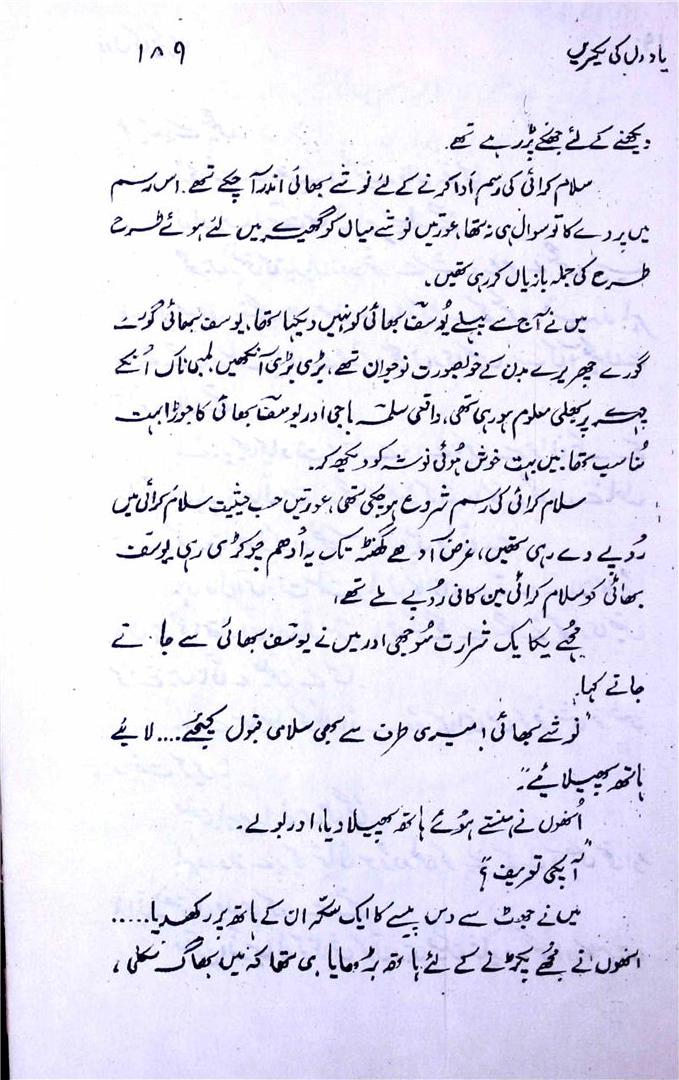 یادوں کی لکیریں ۱۸۹
دیکھنے کے لئے جھنکے پڑ رہے تھے۔
سلام کرائی کی رسم ادا کرنے کے لئے نوشے بھائی اندر آ چکے تھے۔ اس رسم
میں پردے کا تو سوال ہی نہ تھا، عورتیں نوشے میاں کو گھیرے میں لئے ہوئے طرح
طرح کی جملہ بازیاں کر رہی تھیں۔
میں نے آج سے پہلے یُوسف بھائی کو نہیں دیکھا تھا، یوسف بھائی گورے
گورے چھریرے بدن کے خوبصورت نوجوان تھے، بڑی بڑی آنکھیں لمبی ناک اُنکے
چہرے پر بھلی معلوم ہو رہی تھی، واقعی سلمہ باجی اور یوسف بھائی کا جوڑا بہت
مُناسب تھا۔ میں بہت خوش ہوئی نوشہ کو دیکھ کر۔
سلام کرائی کی رسم شروع ہو چکی تھی، عورتیں حسبِ حیثیت سلام کرائی میں
رُوپے دے رہی تھیں، غرض آدھے گھنٹہ تک یہ اُدھم چوکڑی رہی یوسف
بھائی کو سلام کرائی میں کافی رُوپے ملے تھے،
مجھے یکایک شرارت سُوجھی اور میں نے یوسف بھائی سے جاتے
جاتے کہا۔
"نوشے بھائی! میری طرف سے بھی سلامی قبول کیجئے.... لائیے
ہاتھ پھیلائیے"۔
اُنھوں نے ہنستے ہوئے ہاتھ پھیلا دیا، اور بولے۔
"آپکی تعریف؟"
میں نے جھٹ سے دس پیسے کا ایک سکّہ ان کے ہاتھ پر رکھدیا.....
انھوں نے مجھے پکڑنے کے لئے ہاتھ بڑھایا ہی تھا کہ میں بھاگ نکلی،